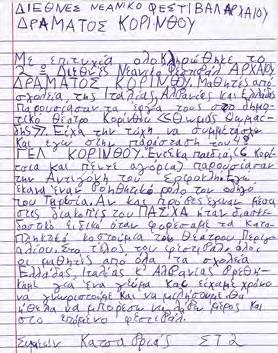 ΔΙΕΘΝΕΣ ΝΕΑΝΙΚΟ ΦΕΣΤΙΒΑΛ ΑΡΧΑΙΟΥ
ΔΡΑΜΑΤΟΣ ΚΟΡΙΝΘΟΥ
Με επιτυχία ολοκληρώθηκε το
2 Διεθνές Νεανικό Φεστιβάλ ΑΡΧΑΙΟΥ
ΔΡΑΜΑΤΟΣ ΚΟΡΙΝΘΟΥ. Μαθητές από
σχολεία, της Ιταλίας, Αλβανίας και Ελλάδας
Παρουσίασαν τα έργα τους στο δημο-
τικό θέατρο Κορίνθου «Θωμάς Θωμαΐ-
δης». Είχα την τύχη να συμμετάσχω
και εγώ στην παράσταση του 4ου
ΓΕΛ ΚΟΡΙΝΘΟΥ. Ένδεκα παιδιά, (6 κορί-
τσια και πέντε αγόρια) παρουσίασαν
την Αντιγόνη του Σοφοκλή. Εγώ
έκανα έναν βοηθητικό ρόλο τον οδηγό
του Τειρεσία. Αν και πρόβες έγιναν μέσα
στις διακοπές του ΠΑΣΧΑ ήταν διασκε-
δαστικό. Ειδικά όταν φορέσαμε τα κατα-
πληκτικά κοστούμια του θεάτρου
Στο τέλος του φεστιβάλ όλοι
οι μαθητές από όλα τα σχολεία
Ελλάδας, Ιταλίας κ' Αλβανίας βρεθή-
καμε για ένα γεύμα και είχαμε χρόνο
να γνωριστούμε και να μιλήσουμε. Θα
ήθελα να μπορέσω να λάβω μέρος και
στο επόμενο φεστιβάλ.
Συμεών Κατσαθριάς ΣΤ2